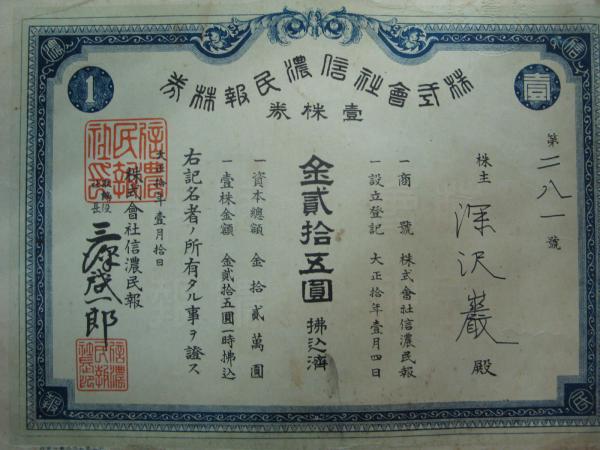 株式會社信濃民報株券
壹株券
壹
1
第二八一號
株主 深沢巖 殿
一商號 株式會社信濃民報
一設立登記 大正拾年壹月四日
金貳拾五圓 拂込濟
一資本總額 金拾貳萬圓
一壹株金額 金貳拾五圓一時拂込
右記名者ノ所有タル事ヲ證ス
大正拾年壹月拾日
株式會社信濃民報
取締役社長
信濃民報社印
信
濃
民
報